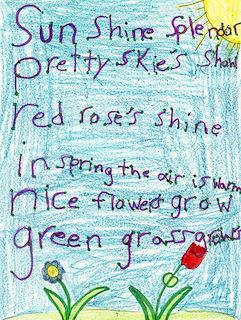 Sun shine splendor
pretty skie's show
red rose's shine
in spring the air is warm
nice flowers grow
green grass